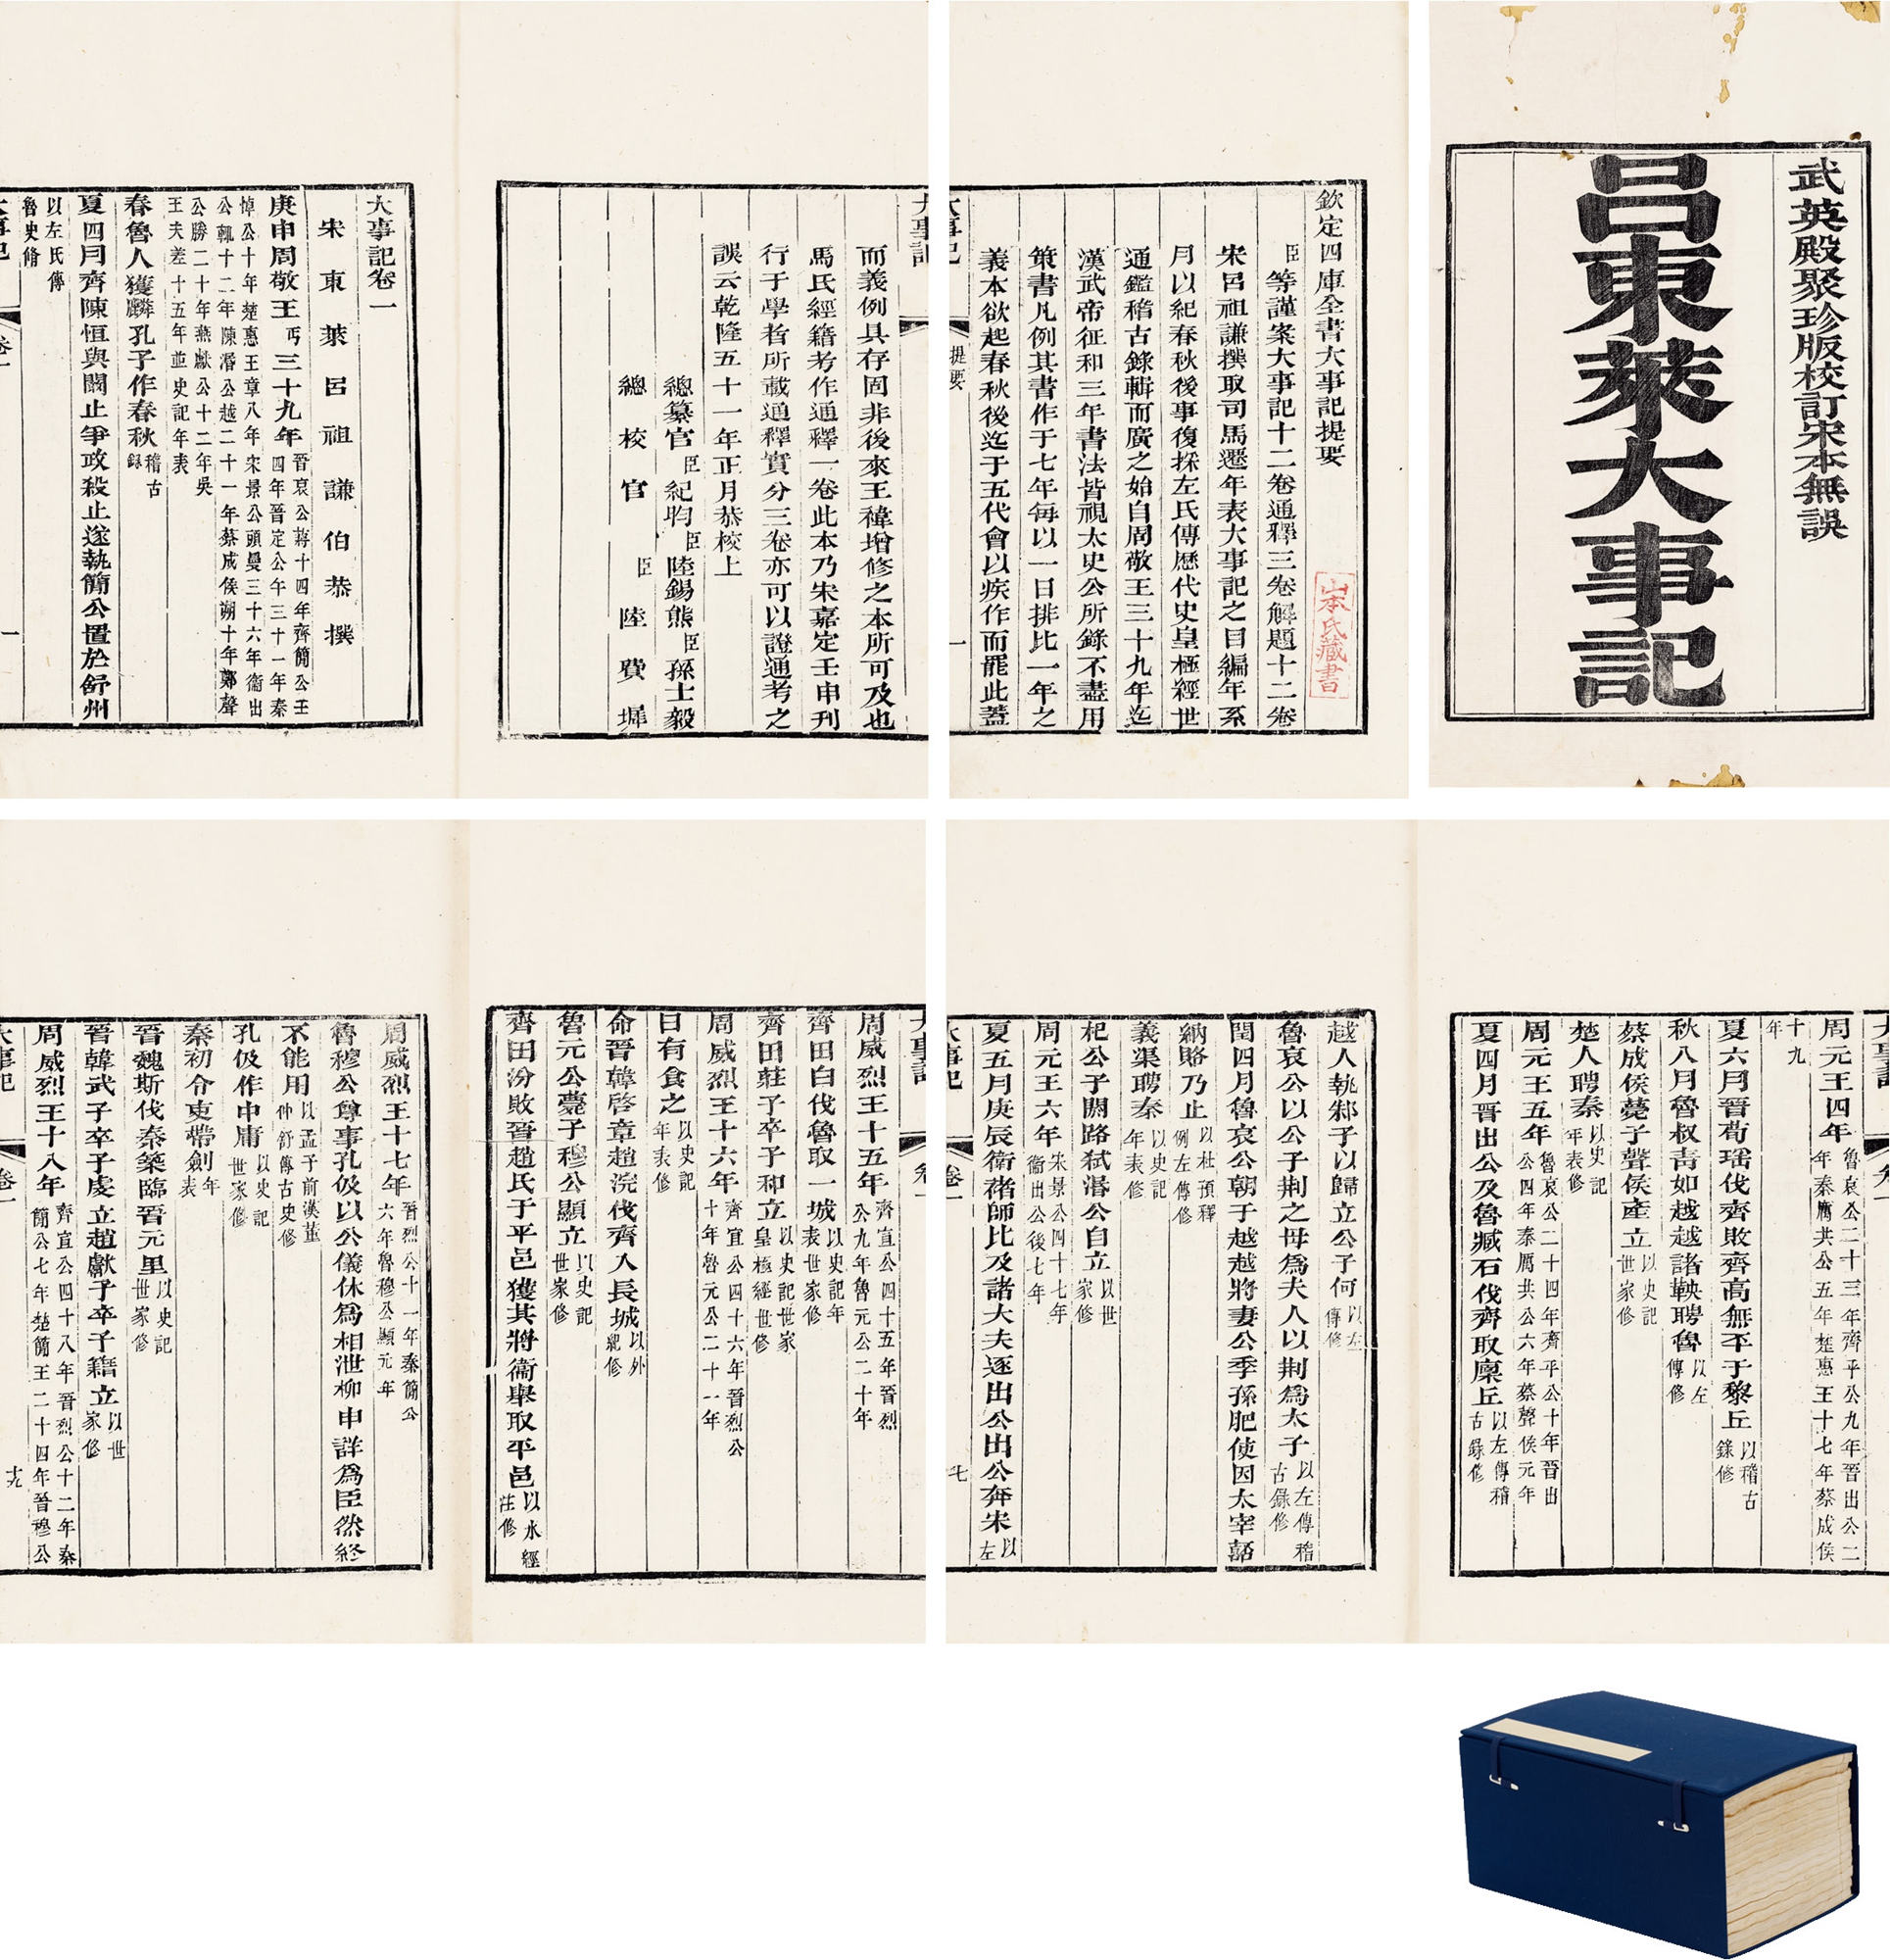 武英殿聚珍版校訂宋本無誤
呂東萊大事記
欽定四庫全書大事記提要
臣等謹案大事記十二卷通釋三卷解題十二卷
宋呂祖謙撰取司馬遷年表大事記之目編年系
月以紀春秋後事復採左氏傳歷代史皇極經世
通鑑稽古錄輯而廣之始自周敬王三十九年迄
漢武帝征和三年書法皆視太史公所錄不盡用
策書凡例其書作于七年每以一日排比一年之
義本欲起春秋後迄于五代會以疾作而罷此蓋
大事記 提要 一
山本氏藏書
大事記
而義例具存固非後來王禕增修之本所可及也
馬氏經籍考作通釋一卷此本乃宋嘉定壬申刊
行于學者所載通釋實分三卷亦可以證通考之
誤云乾隆五十一年正月恭校上
總纂官臣紀昀臣陸錫熊臣孫士毅
總校官臣陸費墀
大事記卷一
宋東萊呂祖謙伯恭撰
庚申周敬王丐三十九年晉哀公蔣十四年齊簡公壬四年晉定公午三十一年秦
悼公十年楚惠王章八年宋景公頭曼三十六年衞出公輒十二年陳湣公越二十一年蔡成侯朔十年鄭聲
公勝二十年燕獻公十二年吳王夫差十五年並史記年表
春魯人獲麟孔子作春秋稽古錄
夏四月齊陳恒與闞止爭政殺止遂執簡公置於舒州
以左氏傳魯史脩
大事記 卷一 一
大事記 卷一
周元王四年魯哀公二十三年齊平公九年晉出公二年秦厲共公五年楚惠王十七年蔡成侯
十九年
夏六月晉荀瑶伐齊敗齊高無㔻于黎丘以稽古錄修
秋八月魯叔青如越越諸鞅聘魯以左傳修
蔡成侯薨子聲侯產立以史記世家修
楚人聘秦以史記年表修
周元王五年魯哀公二十四年齊平公十年晉出公四年秦厲共公六年蔡聲侯元年
夏四月晉出公及魯臧石伐齊取廩丘以左傳稽古錄修
越人執邾子以歸立公子何以左傳修
魯哀公以公子荆之母爲夫人以荆爲太子以左傳稽古錄修
閏四月魯哀公朝于越越將妻公季孫肥使因太宰嚭
納賂乃止以杜預釋例左傳修
義渠聘秦以史記年表修
杞公子閼路弑湣公自立以世家修
周元王六年宋景公四十七年衞出公後七年
夏五月庚辰衛褚師比及諸大夫逐出公出公奔宋以左
大事記 卷一 七
大事記 卷一
周威烈王十五年齊宣公四十五年晉烈公九年魯元公二十年
齊田白伐魯取一城以史記年表世家修
齊田莊子卒子和立以史記世家皇極經世修
周威烈王十六年齊宣公四十六年晉烈公十年魯元公二十一年
日有食之以史記年表修
命晉韓啓章趙浣伐齊入長城以外紀修
魯元公薨子穆公顯立以史記世家修
齊田汾敗晉趙氏于平邑獲其將衞舉取平邑以水經注修
周威烈王十七年晉烈公十一年秦簡公六年魯穆公顯元年
魯穆公尊事孔伋以公儀休爲相泄柳申詳爲臣然終
不能用以孟子前漢董仲舒傳古史修
孔伋作中庸以史記世家修
秦初令吏帶劍年表
晉魏斯伐秦築臨晉元里以史記世家修
晉韓武子卒子虔立趙獻子卒子籍立以世家修
周威烈王十八年齊宣公四十八年晉烈公十二年秦簡公七年楚簡王二十四年晉穆公
大事記 卷一 十九